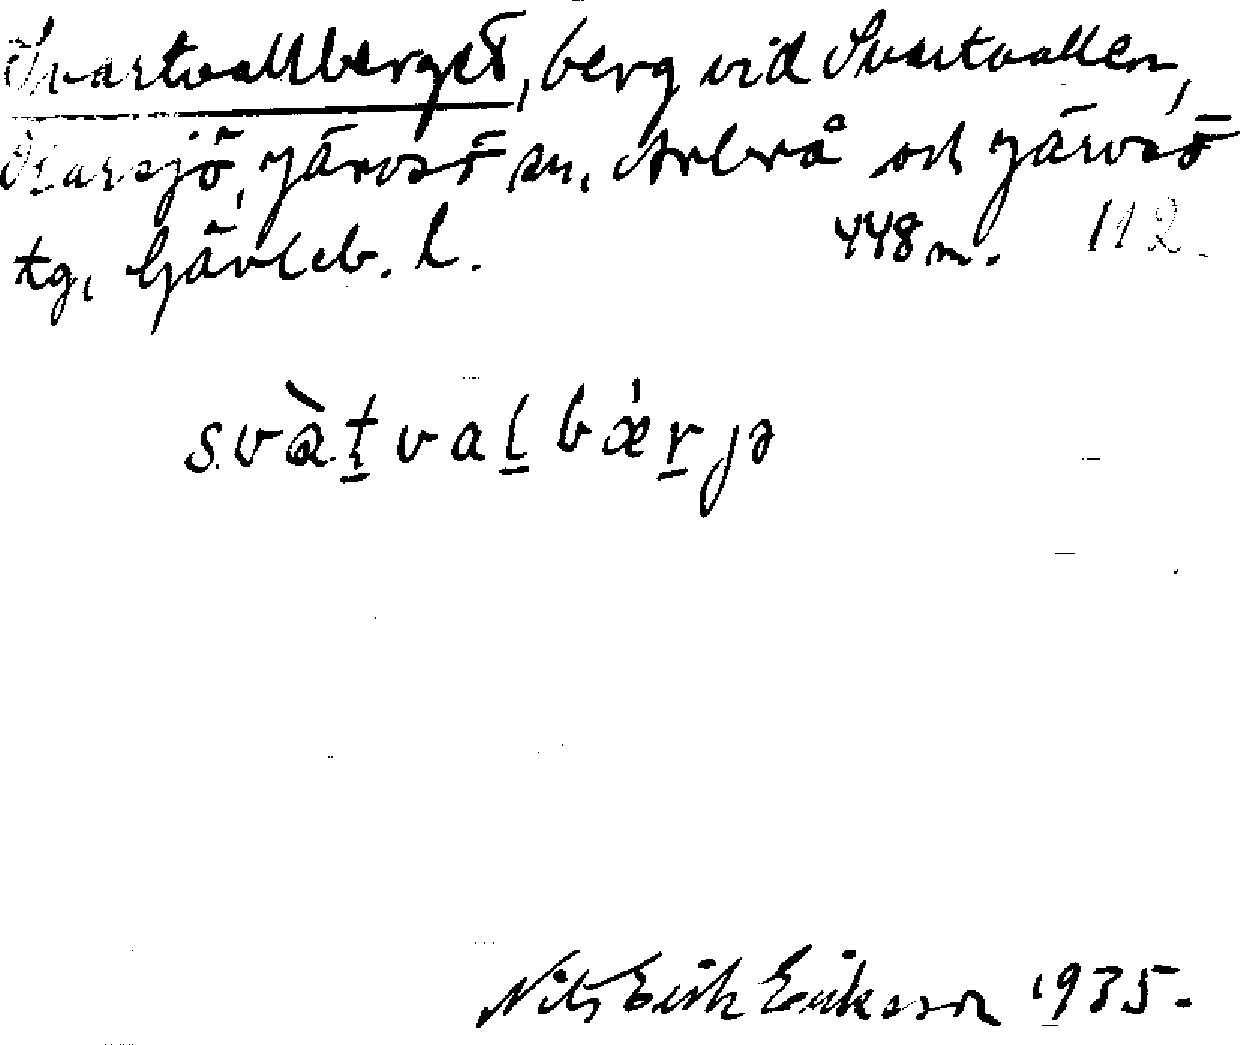 Svartvallberget, berg vid Svartvallen,
Karsjö, Järvsö sn, Arbrå och Järvsö
tg, Gävleb. l. 448 m. 112.
svàt̲val̲bǽr̲jə
Nils Erik Eriksson 1935.